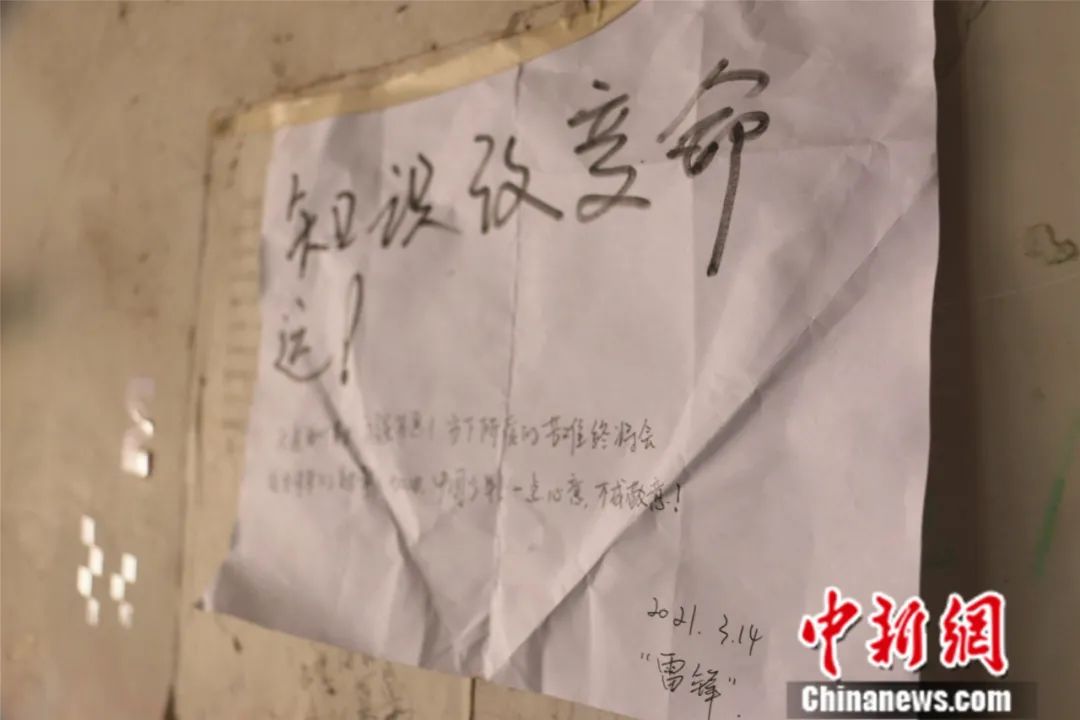 知识改变命
运！
当下所受的苦难终将会
一点心意，不成敬意！
2021. 3.14
“雷锋”
中新網
Chinanews.com